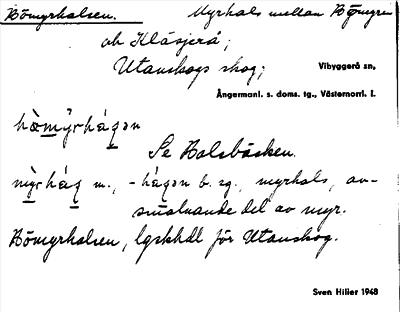 Bömyrhalsen. Myrhals mellan Bömyren
och Klåsjerå;
Utanskogs skog;
Vibyggerå sn,
Ångermanl. s. doms. tg., Västernorrl. l.
Se Balsbäcken.
m., -hágǝn b. sg., myrhals, av-
smalnande del av myr.
Bömyrhalsen, lgskhdl för Utanskog.
Sven Hilier 1948